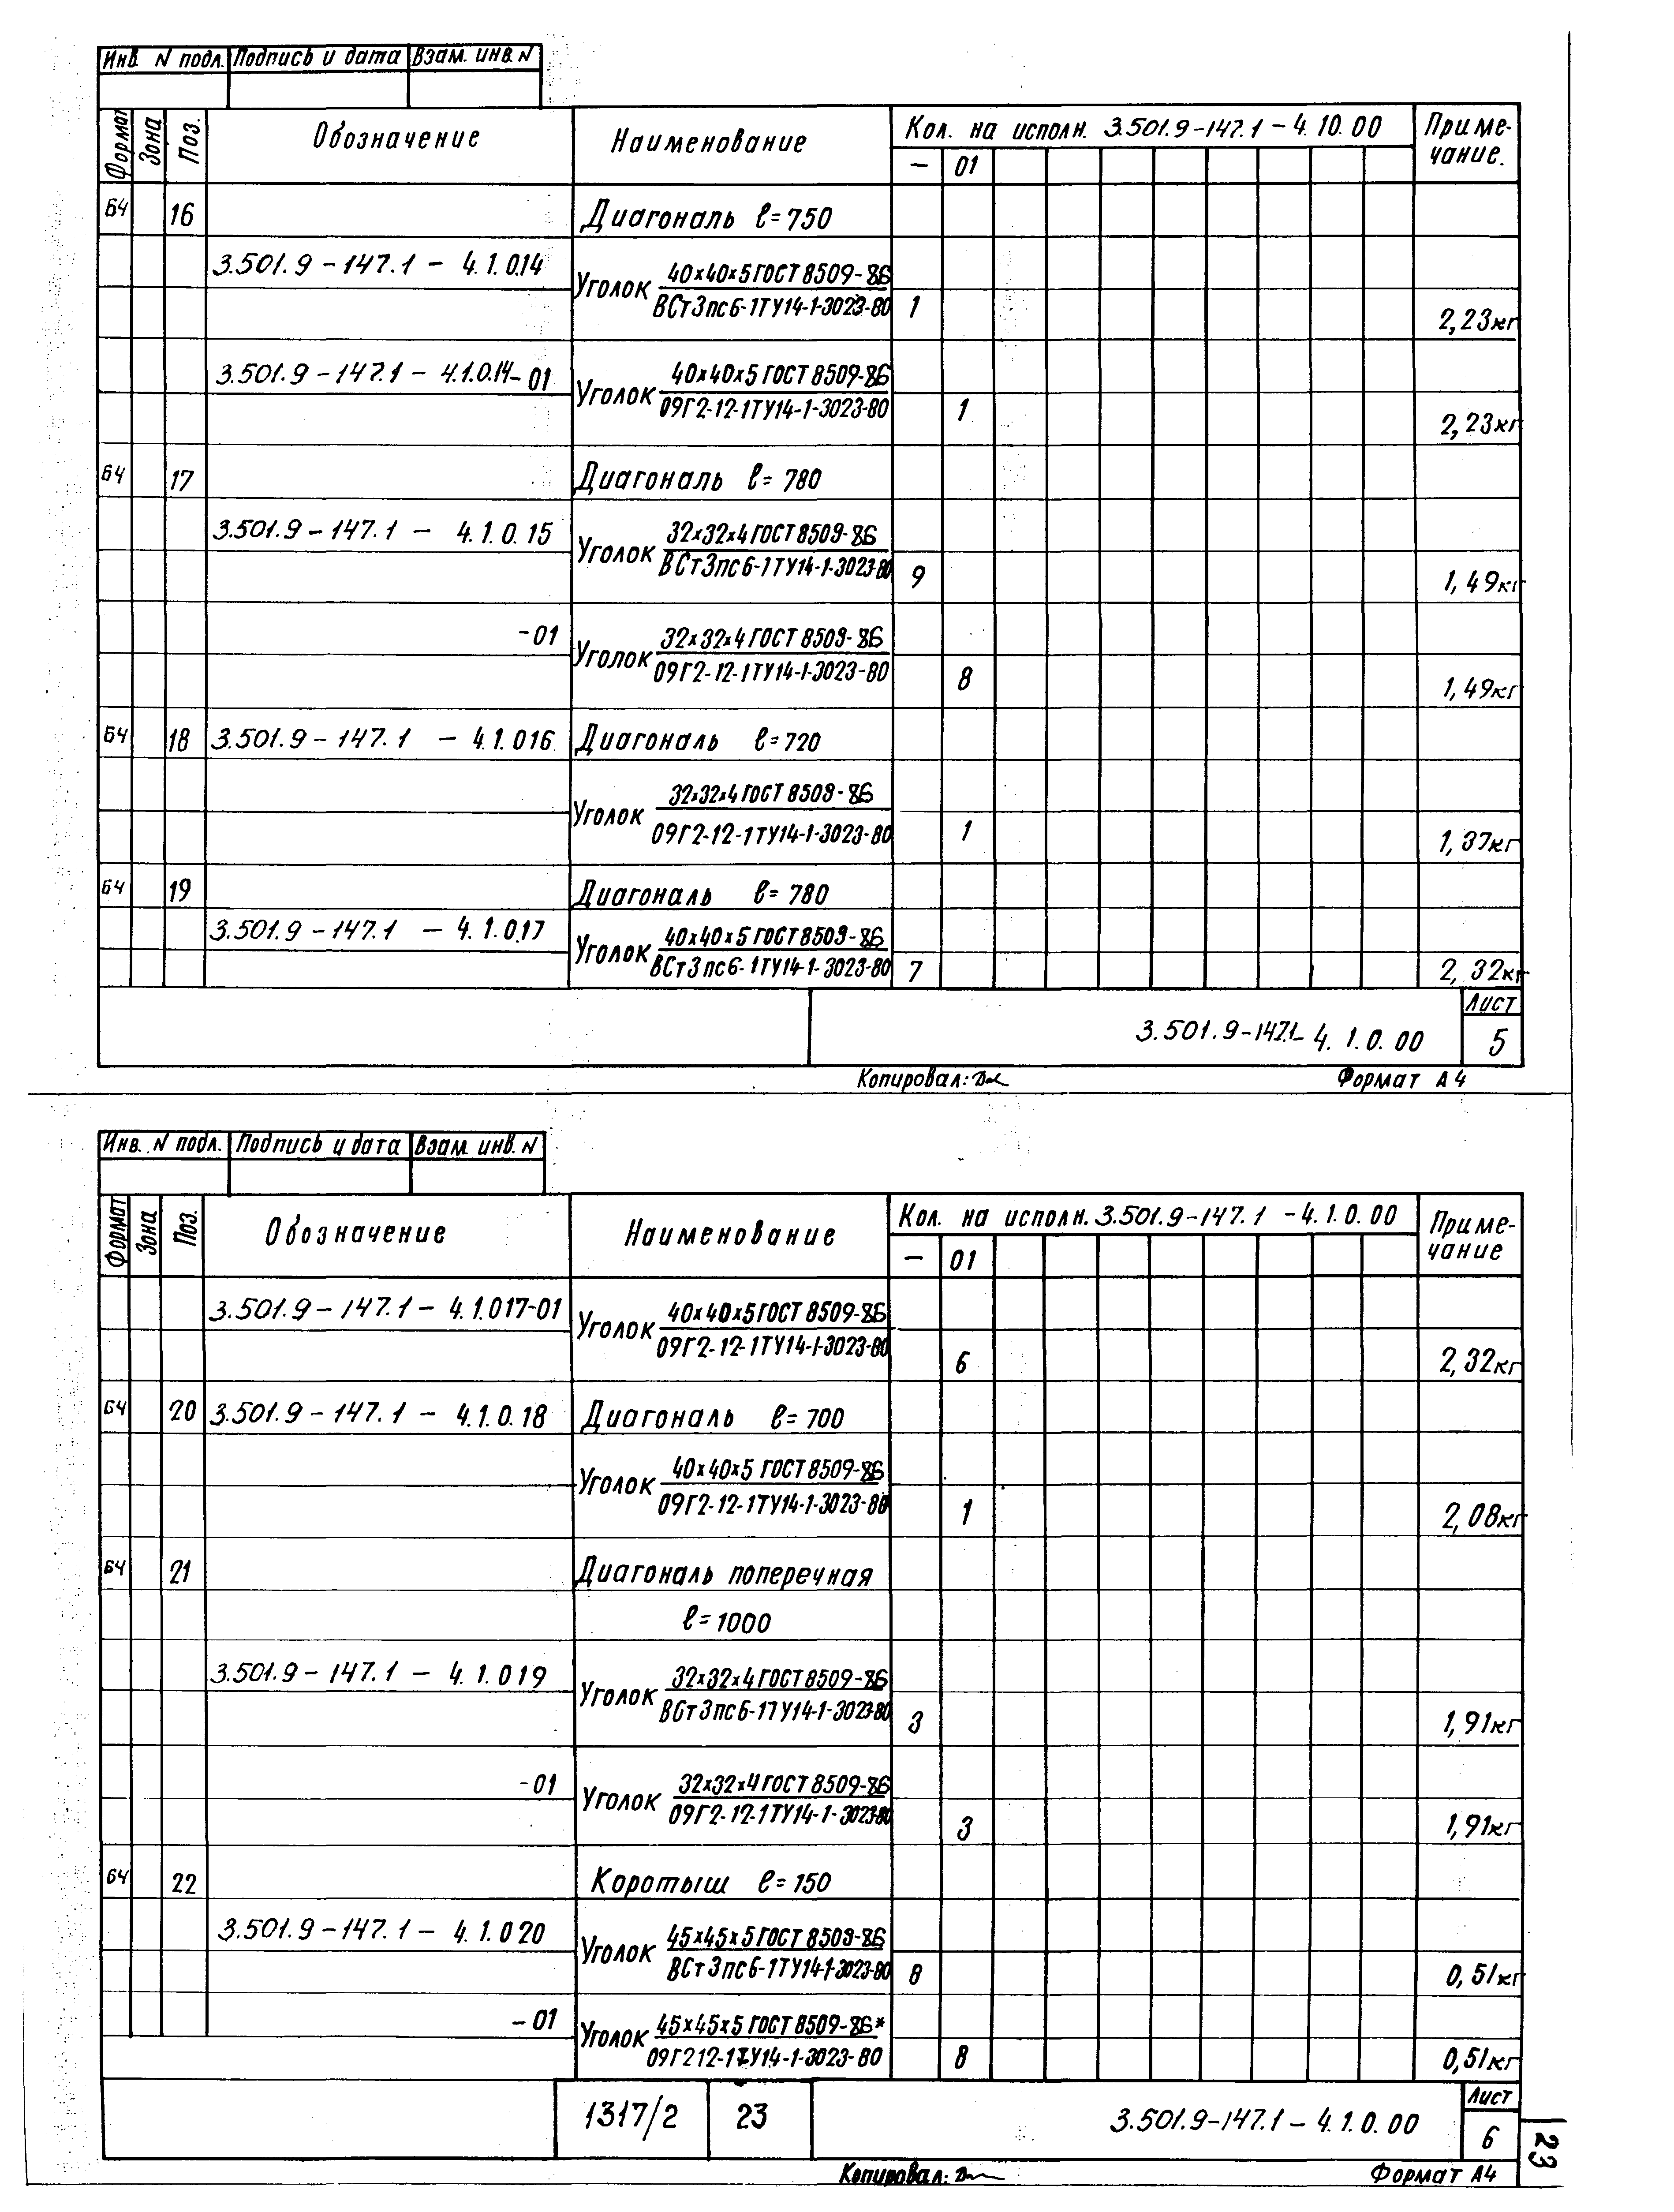 Инв N подл. Подпись и дата Взам. инв. N
Формат Зона Поз. Обозначение Наименование Кол. на исполн. 3.501.9-147.1-4.10.00 Приме-
чание.
– 01
БЧ 16 Диагональ ℓ=750
3.501.9-147.1 - 4.1.0.14 Уголок 40х40х5 ГОСТ 8509-86
ВСт3пс6-1ТУ14-1-3023-80 1 2,23кг
3.501.9-147.1 - 4.1.0.14-01 Уголок 40х40х5 ГОСТ 8509-86
09Г2-12-1ТУ14-1-3023-80 1 2,23кг
БЧ 17 Диагональ ℓ= 780
3.501.9-147.1 - 4.1.0.15 Уголок 32х32х4 ГОСТ 8509-86
ВСт3пс6-1ТУ14-1-3023-80 9 1,49кг
-01 Уголок 32х32х4 ГОСТ 8509-86
09Г2-12-1ТУ14-1-3023-80 8 1,49кг
БЧ 18 3.501.9-147.1 - 4.1.016 Диагональ ℓ=720
Уголок 32х32х4 ГОСТ 8509-86
09Г2-12-1ТУ14-1-3023-80 1 1,37кг
БЧ 19 Диагональ ℓ= 780
3.501.9-147.1 - 4.1.0.17 Уголок 40х40х5 ГОСТ 8509-86
ВСт3пс6-1ТУ14-1-3023-80 7 2,32кг
3.501.9-147.1- 4.1.0.00 Лист
5
Копировал: Формат А4
Инв. N подл. Подпись и дата Взам. инв. N
Формат Зона Поз. Обозначение Наименование Кол. на исполн. 3.501.9-147.1 -4.1.0.00 Приме-
чание
– 01
3.501.9-147.1- 4.1.017-01 Уголок 40х40х5 ГОСТ 8509-86
09Г2-12-1ТУ14-1-3023-80 6 2,32кг
БЧ 20 3.501.9-147.1 - 4.1.0.18 Диагональ ℓ=700
Уголок 40х40х5 ГОСТ 8509-86
09Г2-12-1ТУ14-1-3023-80 1 2,08кг
БЧ 21 Диагональ поперечная
ℓ=1000
3.501.9-147.1 - 4.1.019 Уголок 32х32х4 ГОСТ 8509-86
ВСт3пс6-1ТУ14-1-3023-80 3 1,91кг
-01 Уголок 32х32х4 ГОСТ 8509-86
09Г2-12-1ТУ14-1-3023-80 3 1,91кг
БЧ 22 Коротыш ℓ=150
3.501.9-147.1 - 4.1.020 Уголок 45х45х5 ГОСТ 8509-86
ВСт3пс6-1ТУ14-1-3023-80 8 0,51кг
-01 Уголок 45х45х5 ГОСТ 8509-86*
09Г212-1ТУ14-1-3023-80 8 0,51кг
1317/2 23 3.501.9-147.1 - 4.1.0.00 Лист
6
23
Копировал: Формат А4